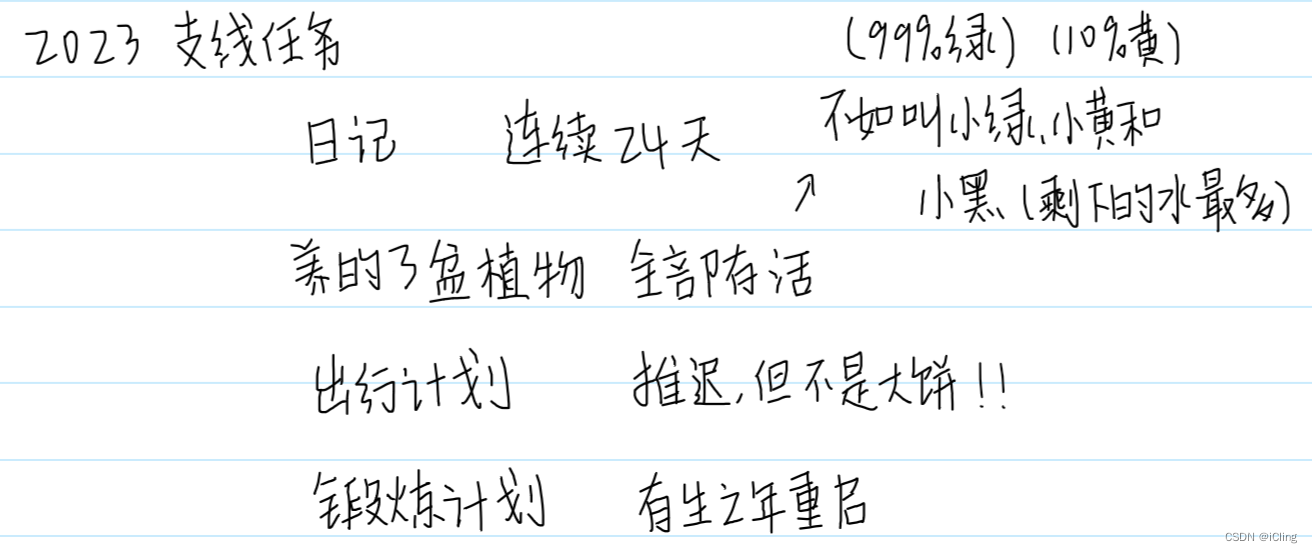 2023 支线任务 (99%绿) (10%黄)
日记 连续24天 不如叫小绿、小黄和
↗ 小黑(剩下的水最多)
养的3盆植物 全部存活
出行计划 推迟,但不是大饼!!
锻炼计划 有生之年重启
CSDN @iCling